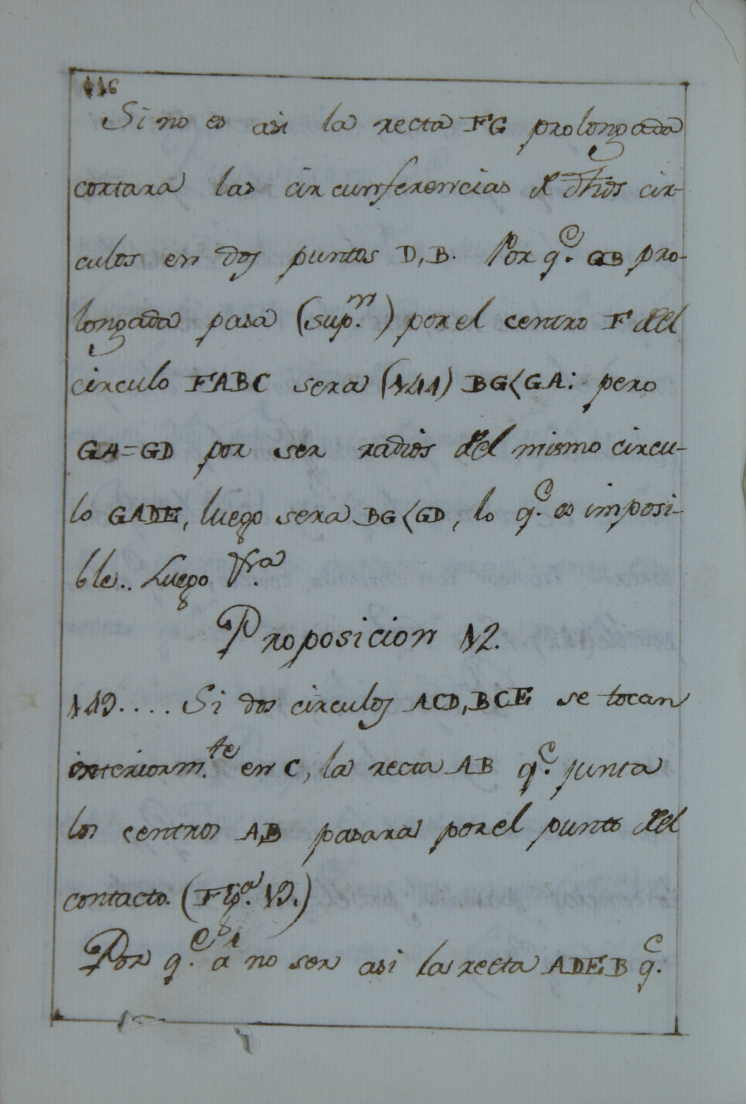 116
Si no es asi la recta FG prolongada
cortara las circunferencias d̄ dhōs cir-
culos en dos puntos D, B. Por q.ᵉ GB pro-
longada pasa (sup.ⁿ) por el centro F del
circulo FABC sera (141) BG<GA: pero
GA=GD por ser radios del mismo circu-
lo GADE, luego sera BG<GD, lo q.ᵉ es imposi-
ble.. Luego &.ʳᵃ
Proposicion 12.
149.... Si dos circulos ACD, BCE se tocan
interiorm.ᵗᵉ en C, la recta AB q.ᵉ junta
los centros A,B pasara por el punto del
contacto. (Fig.ᵃ 19.)
Por q.ᵉ a no ser asi la recta ADEB q.ᵉ